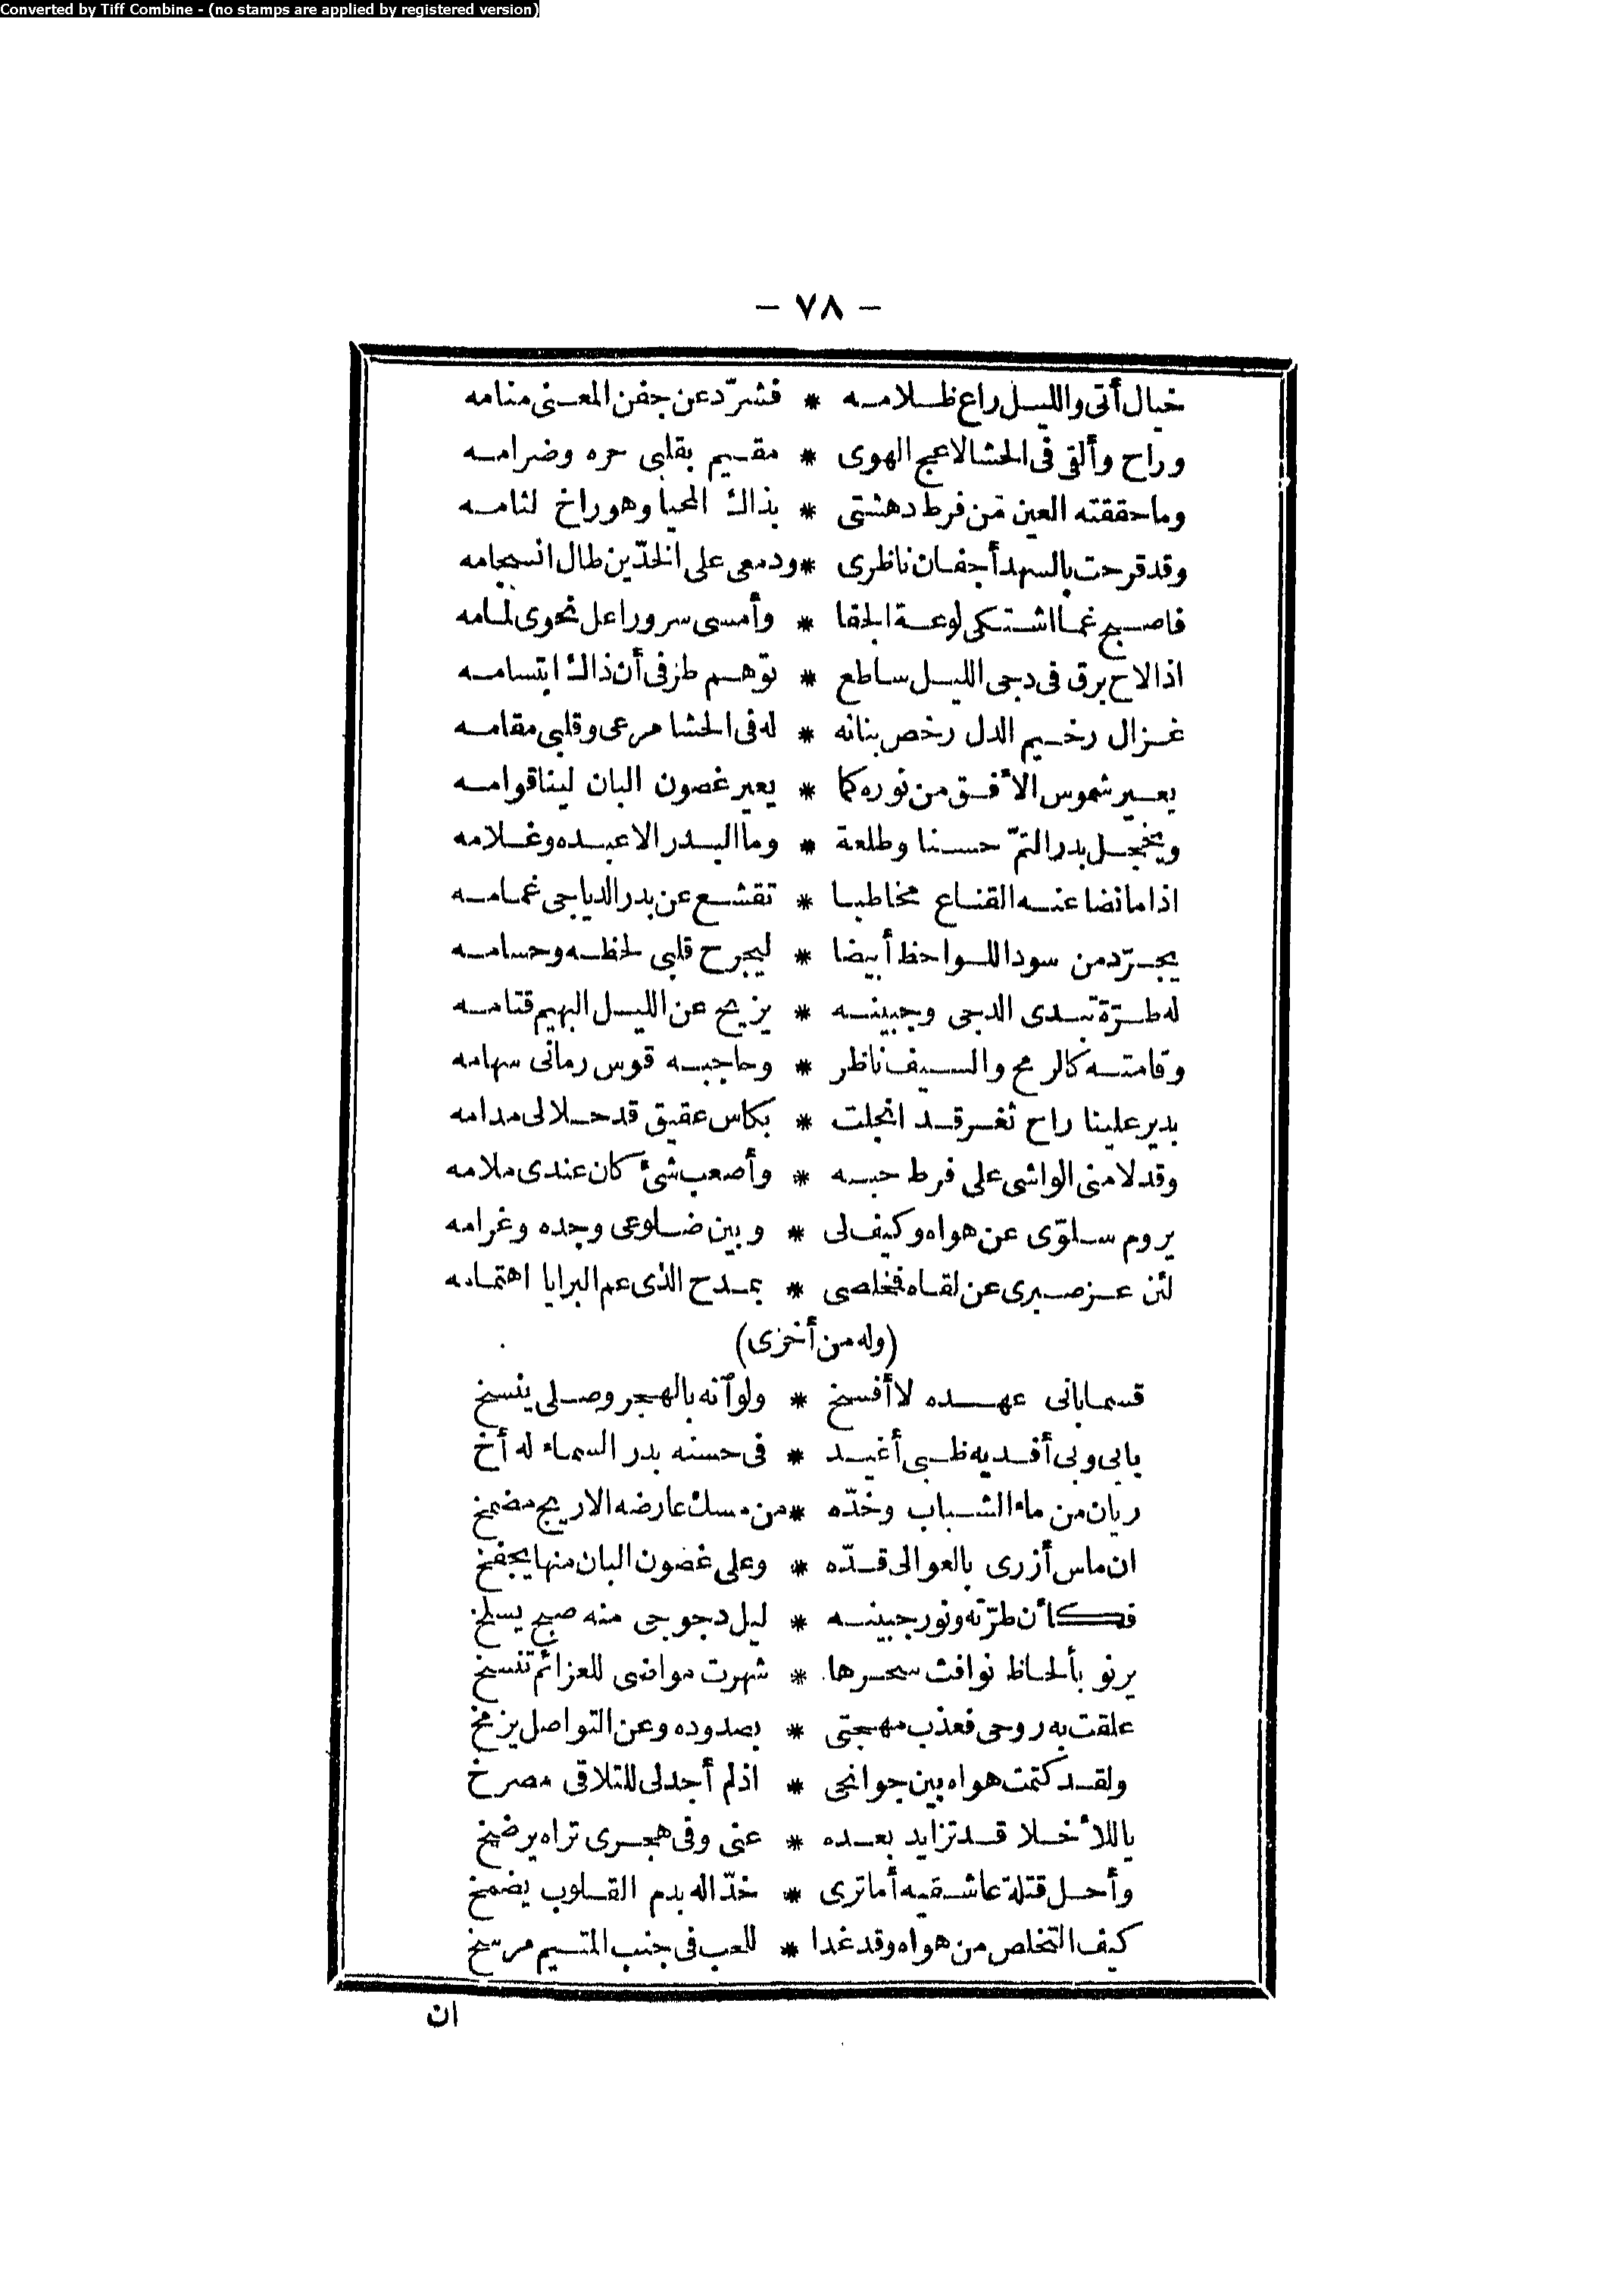 Converted by Tiff Combine - (no stamps are applied by registered version)
– ٧٨ –
خيال أتى والليل راع ظلامه * فشرّد عن جفن المعنى منامه
وراح وألقى فى الحشا لاعج الهوى * مقيم بقلبى حره وضرامه
وما حققته العين من فرط دهشتى * بذاك المحيا وهو راخ لثامه
وقد قرحت بالسهد أجفان ناظرى * ودمعى على الخدّين طال انسجامه
فاصبح غما اشتكى لوعة الجفا * وأمسى سرورا عل نحوى لمامه
اذا لاح برق فى دجى الليل ساطع * توهم طرفى أن ذاك ابتسامه
غزال رخيم الدل رخص بنانه * له فى الحشا مرعى وقلبى مقامه
يعير شموس الأفق من نوره كما * يعير غصون البان لينا قوامه
ويخجل بدر التمّ حسنا وطلعة * وما البدر الا عبده وغلامه
اذا ما نضا عنه القناع مخاطبا * تقشع عن بدر الدياجى غمامه
يجرّد من سود اللواحظ أبيضا * ليجرح قلبى لحظه وحسامه
له طرّة تبدى الدجى وجبينه * يزيح عن الليل البهيم قتامه
وقامته كالرمح والسيف ناظر * وحاجبه قوس رمانى سهامه
يدير علينا راح ثغر قد انجلت * بكاس عقيق قد حلا لى مدامه
وقد لامنى الواشى على فرط حبه * وأصعب شئ كان عندى ملامه
يروم سلوّى عن هواه وكيف لى * وبين ضلوعى وجده وغرامه
لئن عز صبرى عن لقاه فخلصى * بمدح الذى عم البرايا اهتمامه
(وله من أخرى)
قسما بانى عهده لا أفسخ * ولو أنه بالهجر وصلى ينسخ
بابى وبى أفديه ظبى أغيد * فى حسنه بدر السماء له أخ
ريان من ماء الشباب وخدّه * من مسك عارضه الاريج مضمخ
ان ماس أزرى بالعوالى قدّه * وعلى غصون البان منها يجفخ
فكأن طرّته ونور جبينه * ليل دجوجى منه صبح يسلخ
يرنو بألحاظ نوافث سحرها * شهرت مواضى للعزائم تنسخ
علقت به روحى فعذب مهجتى * بصدوده وعن التواصل يزمخ
ولقد كتمت هواه بين جوانحى * اذ لم أجد لى للتلاقى مصرخ
ياللأخلا قد تزايد بعده * عنى وفى هجرى تراه يرضخ
وأحل قتلة عاشقيه أما ترى * خدّا له بدم القلوب يضمخ
كيف التخلص من هواه وقد غدا * للحب فى جنب المتيم مرسخ
ان